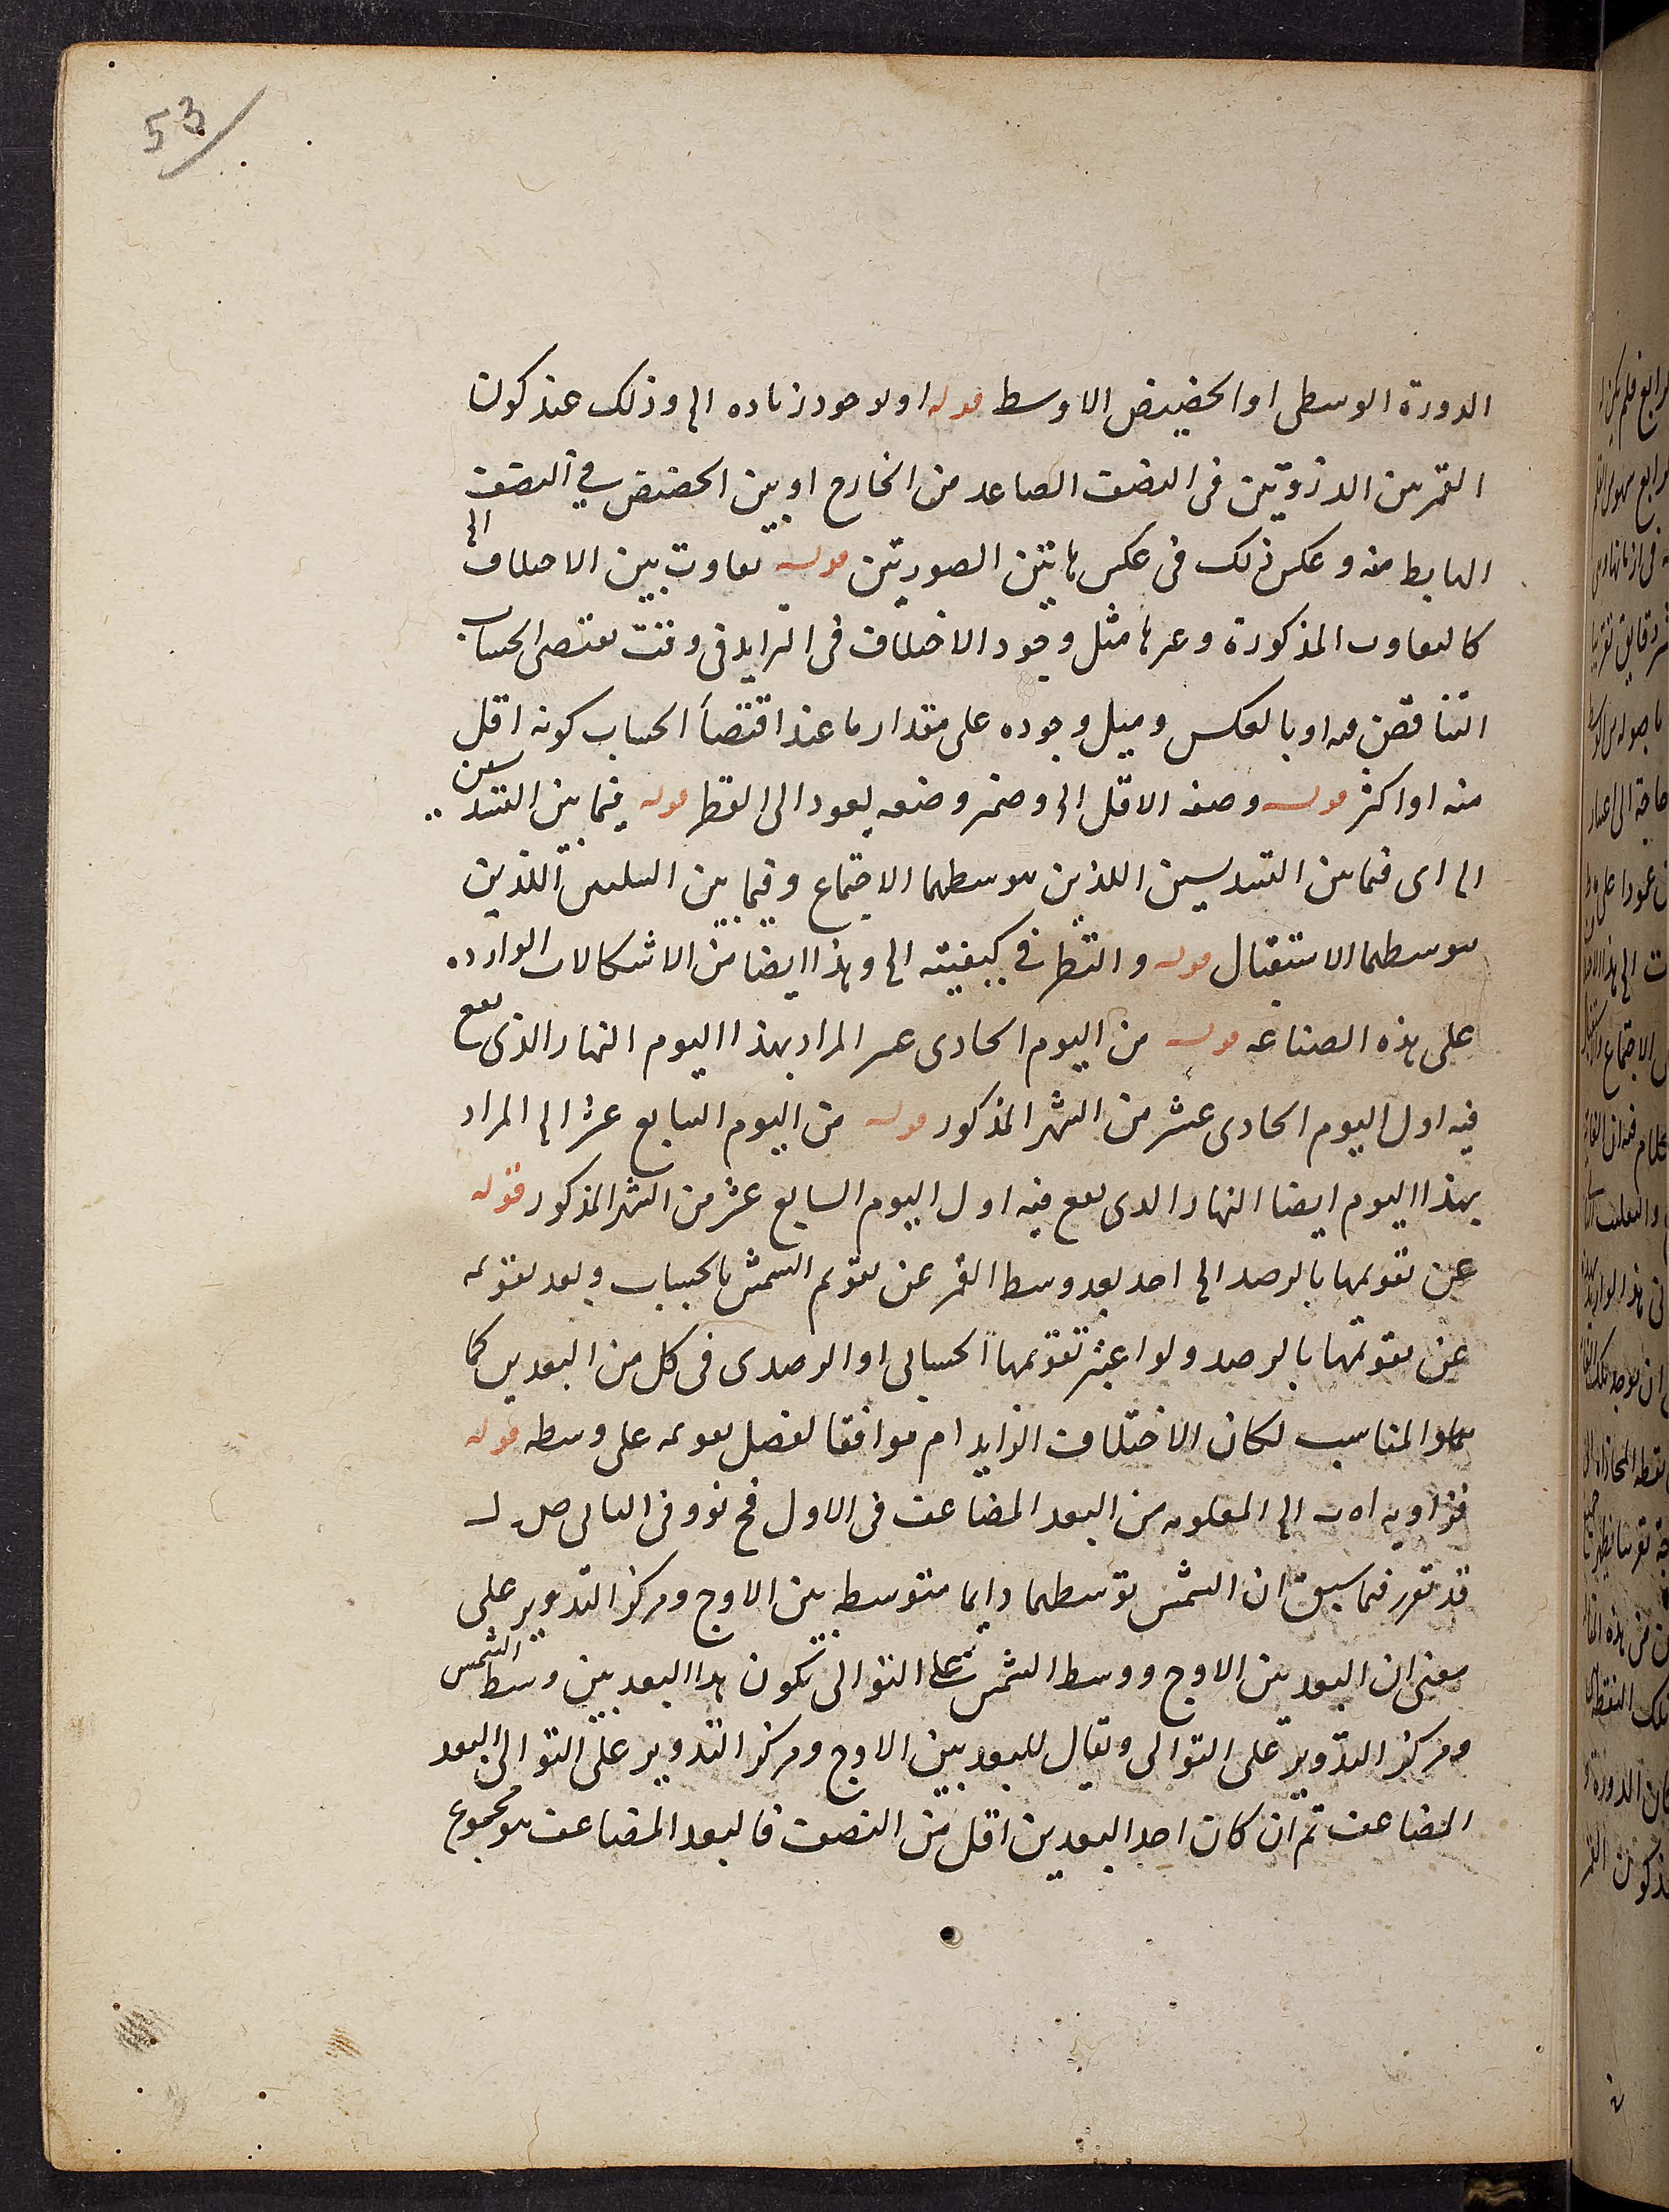 53
الدورة الوسطى او الحضيض الاوسط قوله او لوجود زيادة الخ وذلك عند كون
القمر بين الذروتين فى النصف الصاعد من الخارج او بين الحضيض فى النصف
الهابط منه وعكس ذلك فى عكس هاتين الصورتين قوله تفاوت بين الاختلاف الخ
كالتفاوت المذكورة وغيرها مثل وجود الاختلاف فى التزايد فى وقت يقتضى الحساب
التناقص فيه او بالعكس ومثل وجوده على مقدار ما عند اقتضاء الحساب كونه اقل
منه او اكثر قوله وصفه الاقل الخ وضمير وضعه يعود الى القطر قوله فيما بين التسديسين
الخ اى فيما بين التسديسين اللذين يتوسطهما الاجتماع وفيما بين التثليثين اللذين
يتوسطهما الاستقبال قوله والنظر فى كيفيته الخ وهذا ايضا من الاشكالات الواردة
على هذه الصناعة قوله من اليوم الحادى عشر المراد بهذا اليوم النهار الذى يقع
فيه اول اليوم الحادى عشر من الشهر المذكور قوله من اليوم السابع عشر الخ المراد
بهذا اليوم ايضا النهار الذى يقع فيه اول اليوم السابع عشر من الشهر المذكور قوله
عن تقويمها بالرصد الخ اخذ بعد وسط القمر عن تقويم الشمس بالحساب وبعد تقويمه
عن تقويمها بالرصد ولو اعتبر تقويمها الحسابى او الرصدى فى كل من البعدين كما
هو المناسب لكان الاختلاف الزايد ام موافقا لفضل تقويمه على وسطه قوله
فزاوية اه ب الخ المعلومة من البعد المضاعف فى الاول فح نو وفى الثانى ص ل
قد تقرر فيما سبق ان الشمس بوسطها دايما متوسطة بين الاوج ومركز التدوير على
معنى ان البعد بين الاوج ووسط الشمس على التوالى تكون هذا البعد بين وسط الشمس
ومركز التدوير على التوالى ويقال للبعد بين الاوج ومركز التدوير على التوالى البعد
المضاعف ثم ان كان احد البعدين اقل من النصف فالبعد المضاعف هو مجموع